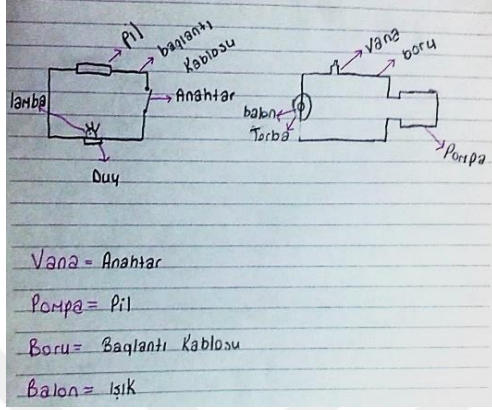 Pil
bağlantı
Kablosu
Anahtar
lamba
Duy
Vana
boru
balon
Torba
Pompa
Vana = Anahtar
Pompa = Pil
Boru = Bağlantı Kablosu
Balon = Işık